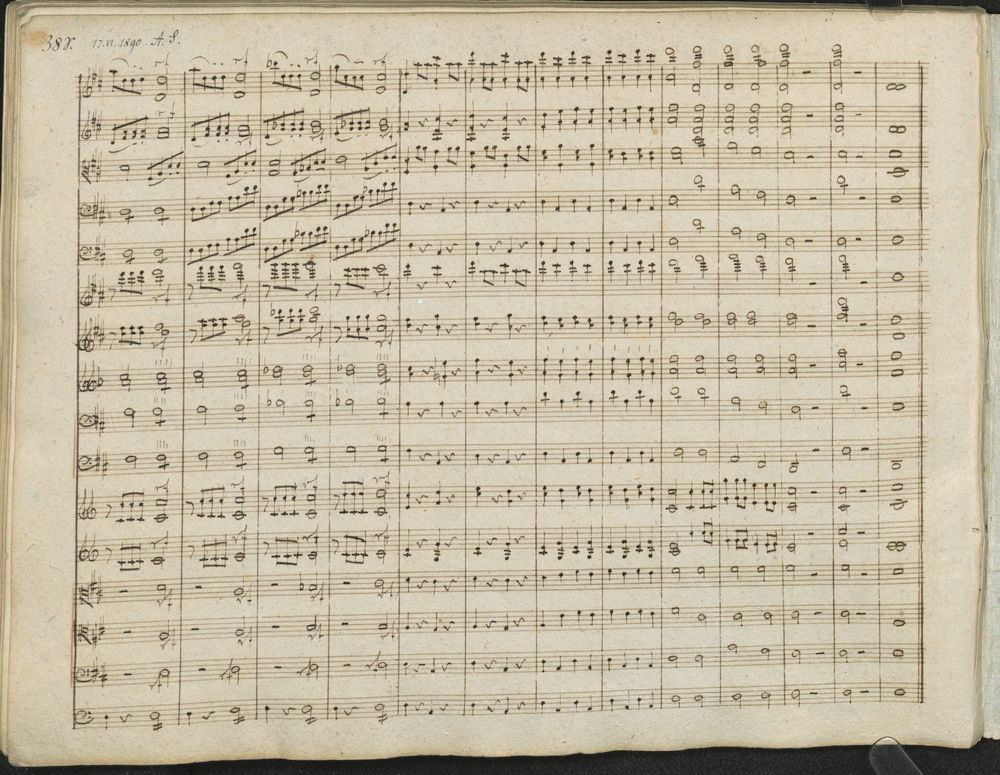 388. 17.VI.1890. A. S.